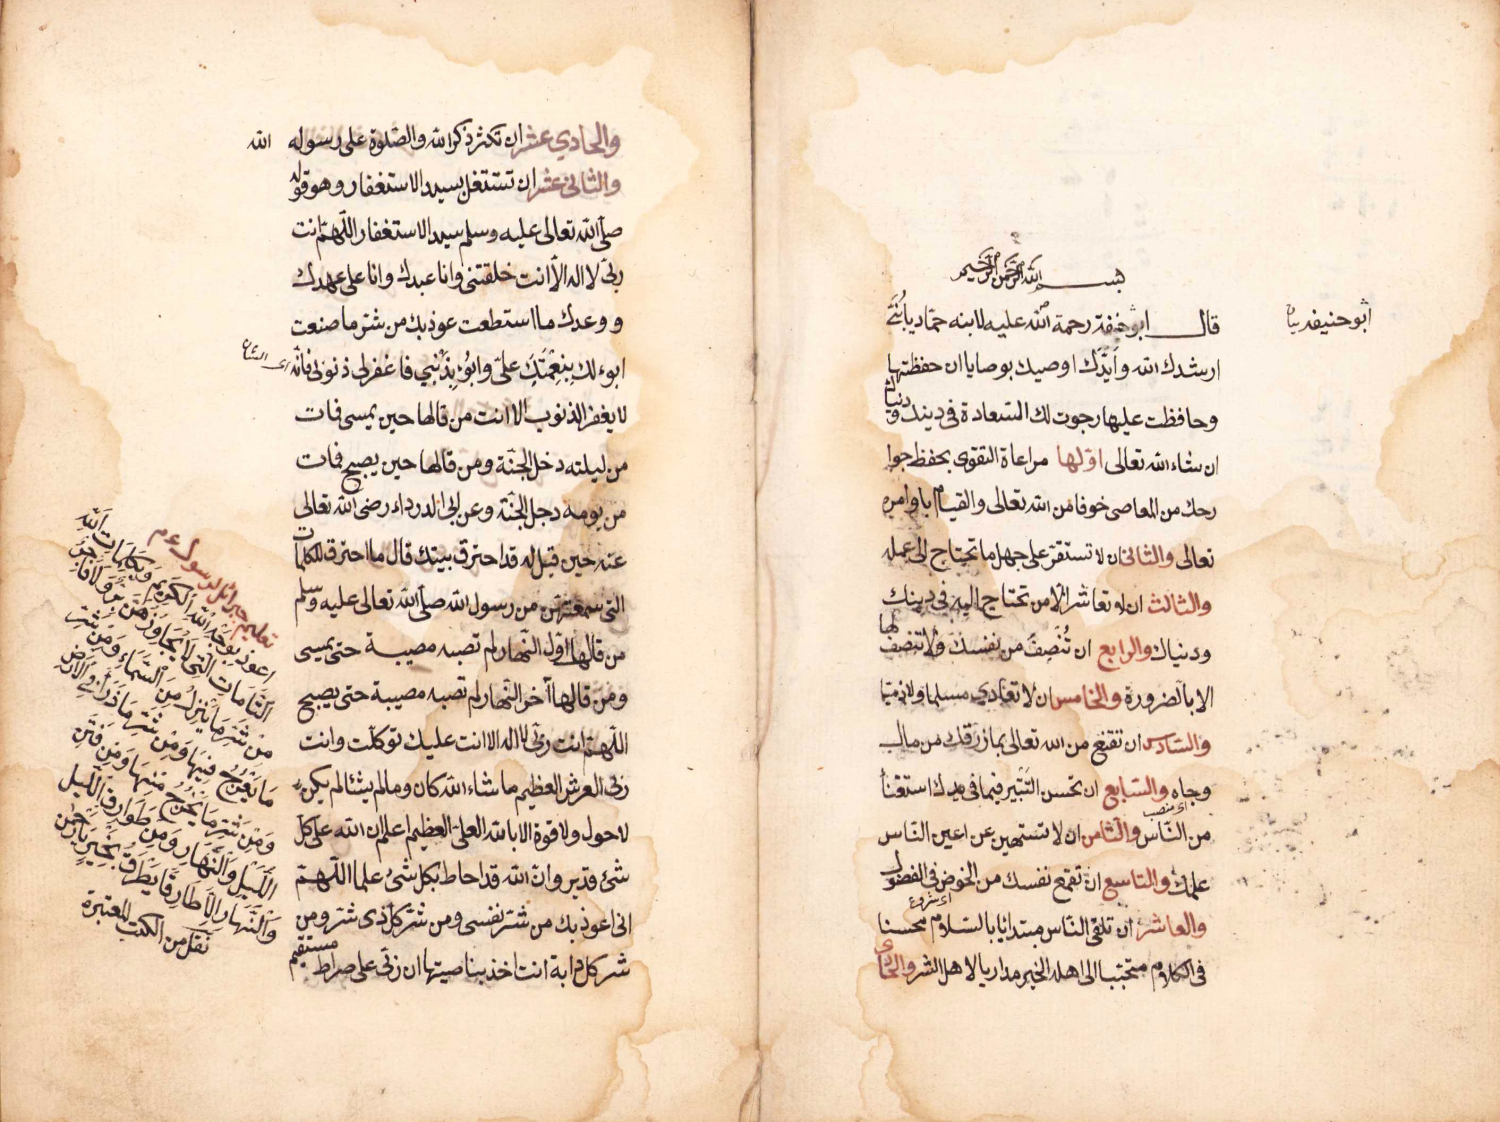 بسم الله الرحمن الرحيم
قال ابو حنيفة رحمة الله عليه لابنه حماد يا بُنَيَّ
ابو حنيفه
ارشدك الله وأيّدك اوصيك بوصايا ان حفظتها
وحافظت عليها رجوت لك السعادة فى دينك ودنياك
ان شاء الله تعالى اوّلها مراعاة التقوى بحفظ جوا
رحك من المعاصى خوفا من الله تعالى والقيام باوامره
تعالى والثانى ان لا تستقرّ على جهل ما تحتاج الى عمله
والثالث ان لا تعاشر الا من تحتاج اليه فى دينك
ودنياك والرابع ان تُنصِفَ من نفسك ولا تنصف لها
الا بالضرورة والخامس ان لا تعادى مسلما ولا ذميّا
والسّادس ان تقنع من الله تعالى بما رزقك من مال
وجاه والسّابع ان تحسن التدبير فيما فى يدك استغنا
من النّاس والثّامن ان لا تستهين عن اعين النّاس
عليك والتاسع ان تقمع نفسك من الخوض فى الفضول
والعاشر ان تلقى النّاس مبتدائا بالسّلام محسنا
فى الكلام متحببا الى اهل الخير مداريا لاهل الشر والحادى
والحادي عشر ان تكثر ذكر الله والصّلوة على رسوله
الله
والثانى عشر ان تشتغل بسيد الاستغفار وهو قوله
صلّى الله تعالى عليه وسلم سيد الاستغفار اللّهمّ انت
ربّى لا اله الّا انت خلقتنى وانا عبدك وانا على عهدك
ووعدك ما استطعت عوذ بك من شرّ ما صنعت
ابوء لك بِنِعْمَتِكَ علىّ وابوُء بِذَنْبي فاغفر لى ذنوبى فانّه
لا يغفر الذنوب الا انت من قالها حين يمسى فمات
من ليلته دخل الجنّة ومن قالها حين يصبح فمات
من يومه دخل الجنّة وعن ابى الدرداء رضى الله تعالى
عنه حين قيل له قد احترق بيتك قال ما احترق للكلمات
التى سمعتهنّ من رسول الله صلّى الله تعالى عليه وسلم
من قالها اوّل النّهار لم تصبه مصيبة حتى يمسى
ومن قالها آخر النّهار لم تصبه مصيبة حتى يصبح
اللّهمّ انت ربّى لا اله الا انت عليك توكلت وانت
ربّ العرش العظيم ما شاء الله كان وما لم يشأ لم يكن
لا حول ولا قوة الا بالله العلىّ العظيم اعلم ان الله على كل
شئ قدير وانّ الله قد احاط بكل شئ علما اللّهمّ
انى اعوذ بك من شرّ نفسى ومن شرّ كلّ ذى شرّ ومن
شر كل دابة انت اخذ بناصيتها ان ربّى على صراط مستقيم
تعليم جبرائل لرسول
اعوذ بوجه الله الكريم وبكلمات الله
التّامات التى لا يجاوزهنّ برّ ولا فاجر
من شرّ ما ينزل من السّماء ومن شرّ
ما يعرج فيها ومن شرّ ما ذرأ فى الارض
ومن شرّ ما يخرج منها ومن فتن
اللّيل والنّهار ومن طوارق اللّيل
والنّهار الا طارقا يطرق بخير يا رحمن
نقل من الكتب المعتبرة